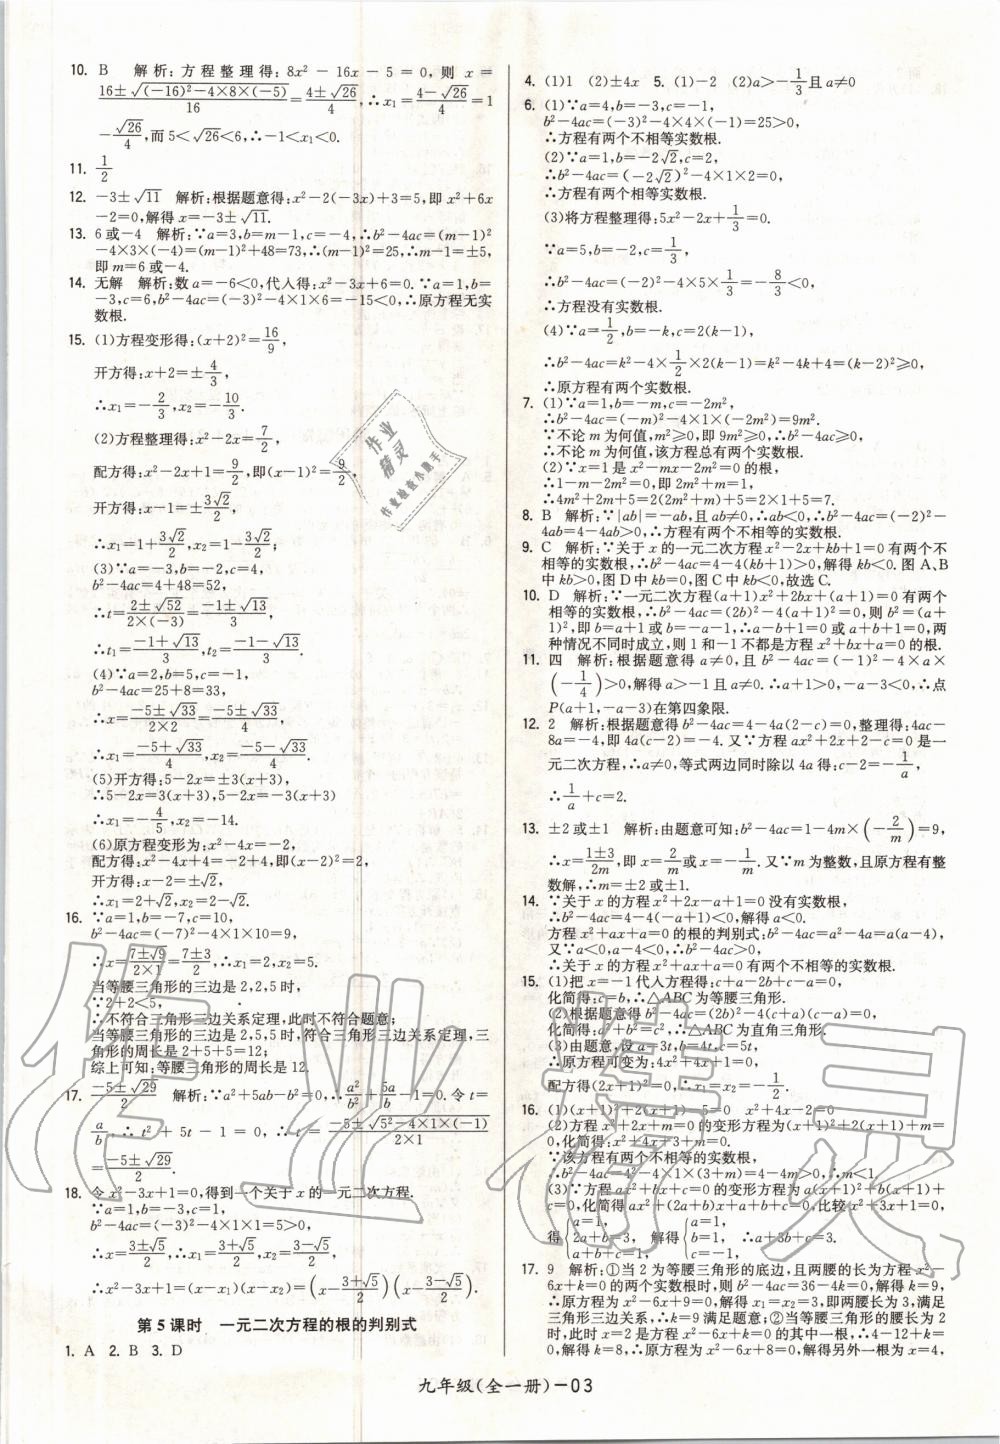 10. B 解析:方程整理得:8x²-16x-5=0,则 x=
16±√(-16)²-4×8×(-5)/16=4±√26/4,∴x₁=4-√26/4=1
-√26/4,而5<√26<6,∴-1<x₁<0.
11. 1/2
12. -3±√11 解析:根据题意得:x²-2(-3x)+3=5,即x²+6x
-2=0,解得x=-3±√11.
13. 6或-4 解析:∵a=3,b=m-1,c=-4,∴b²-4ac=(m-1)²
-4×3×(-4)=(m-1)²+48=73,∴(m-1)²=25,∴m-1=±5,
即m=6或-4.
14. 无解 解析:数a=-6<0,代入得:x²-3x+6=0.∵a=1,b=
-3,c=6,b²-4ac=(-3)²-4×1×6=-15<0,∴原方程无实
数根.
15. (1)方程变形得:(x+2)²=16/9,
开方得:x+2=±4/3,
∴x₁=-2/3,x₂=-10/3.
(2)方程整理得:x²-2x=7/2,
配方得:x²-2x+1=9/2,即(x-1)²=9/2,
开方得:x-1=±3√2/2,
∴x₁=1+3√2/2,x₂=1-3√2/2;
(3)∵a=-3,b=-2,c=4,
b²-4ac=4+48=52,
∴t=2±√52/2×(-3)=-1±√13/3,
∴t₁=-1+√13/3,t₂=-1-√13/3.
(4)∵a=2,b=5,c=-1,
b²-4ac=25+8=33,
∴x=-5±√33/2×2=-5±√33/4,
∴x₁=-5+√33/4,x₂=-5-√33/4.
(5)开方得:5-2x=±3(x+3),
∴5-2x=3(x+3),5-2x=-3(x+3)
∴x₁=-4/5,x₂=-14.
(6)原方程变形为:x²-4x=-2,
配方得:x²-4x+4=-2+4,即(x-2)²=2,
开方得:x-2=±√2,
∴x₁=2+√2,x₂=2-√2.
16. ∵a=1,b=-7,c=10,
b²-4ac=(-7)²-4×1×10=9,
∴x=7±√9/2×1=7±3/2,∴x₁=2,x₂=5.
当等腰三角形的三边是2,2,5时,
∵2+2<5,
∴不符合三角形三边关系定理,此时不符合题意;
当等腰三角形的三边是2,5,5时,符合三角形三边关系定理,三
角形的周长是2+5+5=12;
综上可知:等腰三角形的周长是12.
17. -5±√29/2 解析:∵a²+5ab-b²=0,∴a²/b²+5a/b-1=0.令t=
a/b,∴t²+5t-1=0,∴t=-5±√5²-4×1×(-1)/2×1
=-5±√29/2.
18. 令x²-3x+1=0,得到一个关于x的一元二次方程.
∵a=1,b=-3,c=1,
b²-4ac=(-3)²-4×1×1=5>0,
∴x=3±√5/2,∴x₁=3+√5/2,x₂=3-√5/2,
∴x²-3x+1=(x-x₁)(x-x₂)=(x-3+√5/2)(x-3-√5/2).
第5课时 一元二次方程的根的判别式
1. A 2. B 3. D
4. (1)1 (2)±4x 5. (1)-2 (2)a>-1/3且a≠0
6. (1)∵a=4,b=-3,c=-1,
b²-4ac=(-3)²-4×4×(-1)=25>0,
∴方程有两个不相等实数根.
(2)∵a=1,b=-2√2,c=2,
∴b²-4ac=(-2√2)²-4×1×2=0,
∴方程有两个相等实数根.
(3)将方程整理得:5x²-2x+1/3=0.
∵a=5,b=-2,c=1/3,
∴b²-4ac=(-2)²-4×5×1/3=-8/3<0,
∴方程没有实数根.
(4)∵a=1/2,b=-k,c=2(k-1),
∴b²-4ac=k²-4×1/2×2(k-1)=k²-4k+4=(k-2)²≥0,
∴原方程有两个实数根.
7. (1)∵a=1,b=-m,c=-2m²,
∴b²-4ac=(-m)²-4×1×(-2m²)=9m².
∵不论m为何值,m²≥0,即9m²≥0,∴b²-4ac≥0,
∴不论m为何值,该方程总有两个实数根.
(2)∵x=1是x²-mx-2m²=0的根,
∴1-m-2m²=0,即2m²+m=1,
∴4m²+2m+5=2(2m²+m)+5=2×1+5=7.
8. B 解析:∵|ab|=-ab,且ab≠0,∴ab<0,∴b²-4ac=(-2)²-
4ab=4-4ab>0,∴方程有两个不相等的实数根.
9. C 解析:∵关于x的一元二次方程x²-2x+kb+1=0有两个不
相等的实数根,∴b²-4ac=4-4(kb+1)>0,解得kb<0.图A、B
中kb>0,图D中kb=0,图C中kb<0,故选C.
10. D 解析:∵一元二次方程(a+1)x²+2bx+(a+1)=0有两个
相等的实数根,∴b²-4ac=(2b)²-4(a+1)²=0,则b²=(a+
1)²,即b=a+1或b=-a-1,∴a-b+1=0或a+b+1=0,两
种情况不同时成立,则1和-1不都是方程x²+bx+a=0的根.
11. 四 解析:根据题意得a≠0,且b²-4ac=(-1)²-4×a×
(-1/4)>0,解得a>-1且a≠0.∴a+1>0,-a-3<0,∴点
P(a+1,-a-3)在第四象限.
12. 2 解析:根据题意得b²-4ac=4-4a(2-c)=0,整理得:4ac-
8a=-4,即4a(c-2)=-4.又∵方程ax²+2x+2-c=0是一
元二次方程,∴a≠0,等式两边同时除以4a得:c-2=-1/a,
∴1/a+c=2.
13. ±2或±1 解析:由题意可知:b²-4ac=1-4m×(-2/m)=9,
∴x=1±3/2m,即x=2/m或x=-1/m.又∵m为整数,且原方程有整
数解,∴m=±2或±1.
14. ∵关于x的方程x²+2x-a+1=0没有实数根,
∴b²-4ac=4-4(-a+1)<0,解得a<0.
方程x²+ax+a=0的根的判别式:b²-4ac=a²-4a=a(a-4),
又∵a<0,a-4<0,∴b²-4ac>0,
∴关于x的方程x²+ax+a=0有两个不相等的实数根.
15. (1)把x=-1代入方程得:c+a-2b+c-a=0,
化简得:c=b,∴△ABC为等腰三角形.
(2)根据题意得b²-4ac=(2b)²-4(c+a)(c-a)=0,
化简得:a²+b²=c²,∴△ABC为直角三角形.
(3)由题意,设a=3t,b=4t,c=5t,
∴原方程可变为:4x²+4x+1=0,
配方得(2x+1)²=0,∴x₁=x₂=-1/2.
16. (1)(x+1)²+2(x+1)-5=0 x²+4x-2=0
(2)方程x²+2x+m=0的变形方程为(x+1)²+2(x+1)+m=
0,化简得:x²+4x+3+m=0.
∵该方程有两个不相等的实数根,
∴b²-4ac=4²-4×1×(3+m)=4-4m>0,∴m<1.
(3)∵方程ax²+bx+c=0的变形方程为a(x+1)²+b(x+1)+
c=0,化简得:ax²+(2a+b)x+a+b+c=0,比较x²+3x+1=0,
得{a=1,2a+b=3,a+b+c=1, 解得{a=1,b=1,c=-1, ∴a+3b+c=3.
17. 9 解析:①当2为等腰三角形的底边,且两腰的长为方程x²-
6x+k=0的两个实数根时,则b²-4ac=36-4k=0,解得k=9,
∴原方程为x²-6x+9=0,解得x₁=x₂=3,即两腰长为3,满足
三角形三边关系,∴k=9满足题意;②当等腰三角形的腰长为2
时,此时x=2是方程x²-6x+k=0的其中一根,∴4-12+k=
0,解得k=8,∴原方程为x²-6x+8=0,解得另外一根为x=4,
九年级(全一册)-03
作业精灵
作业检查小助手
作业精灵